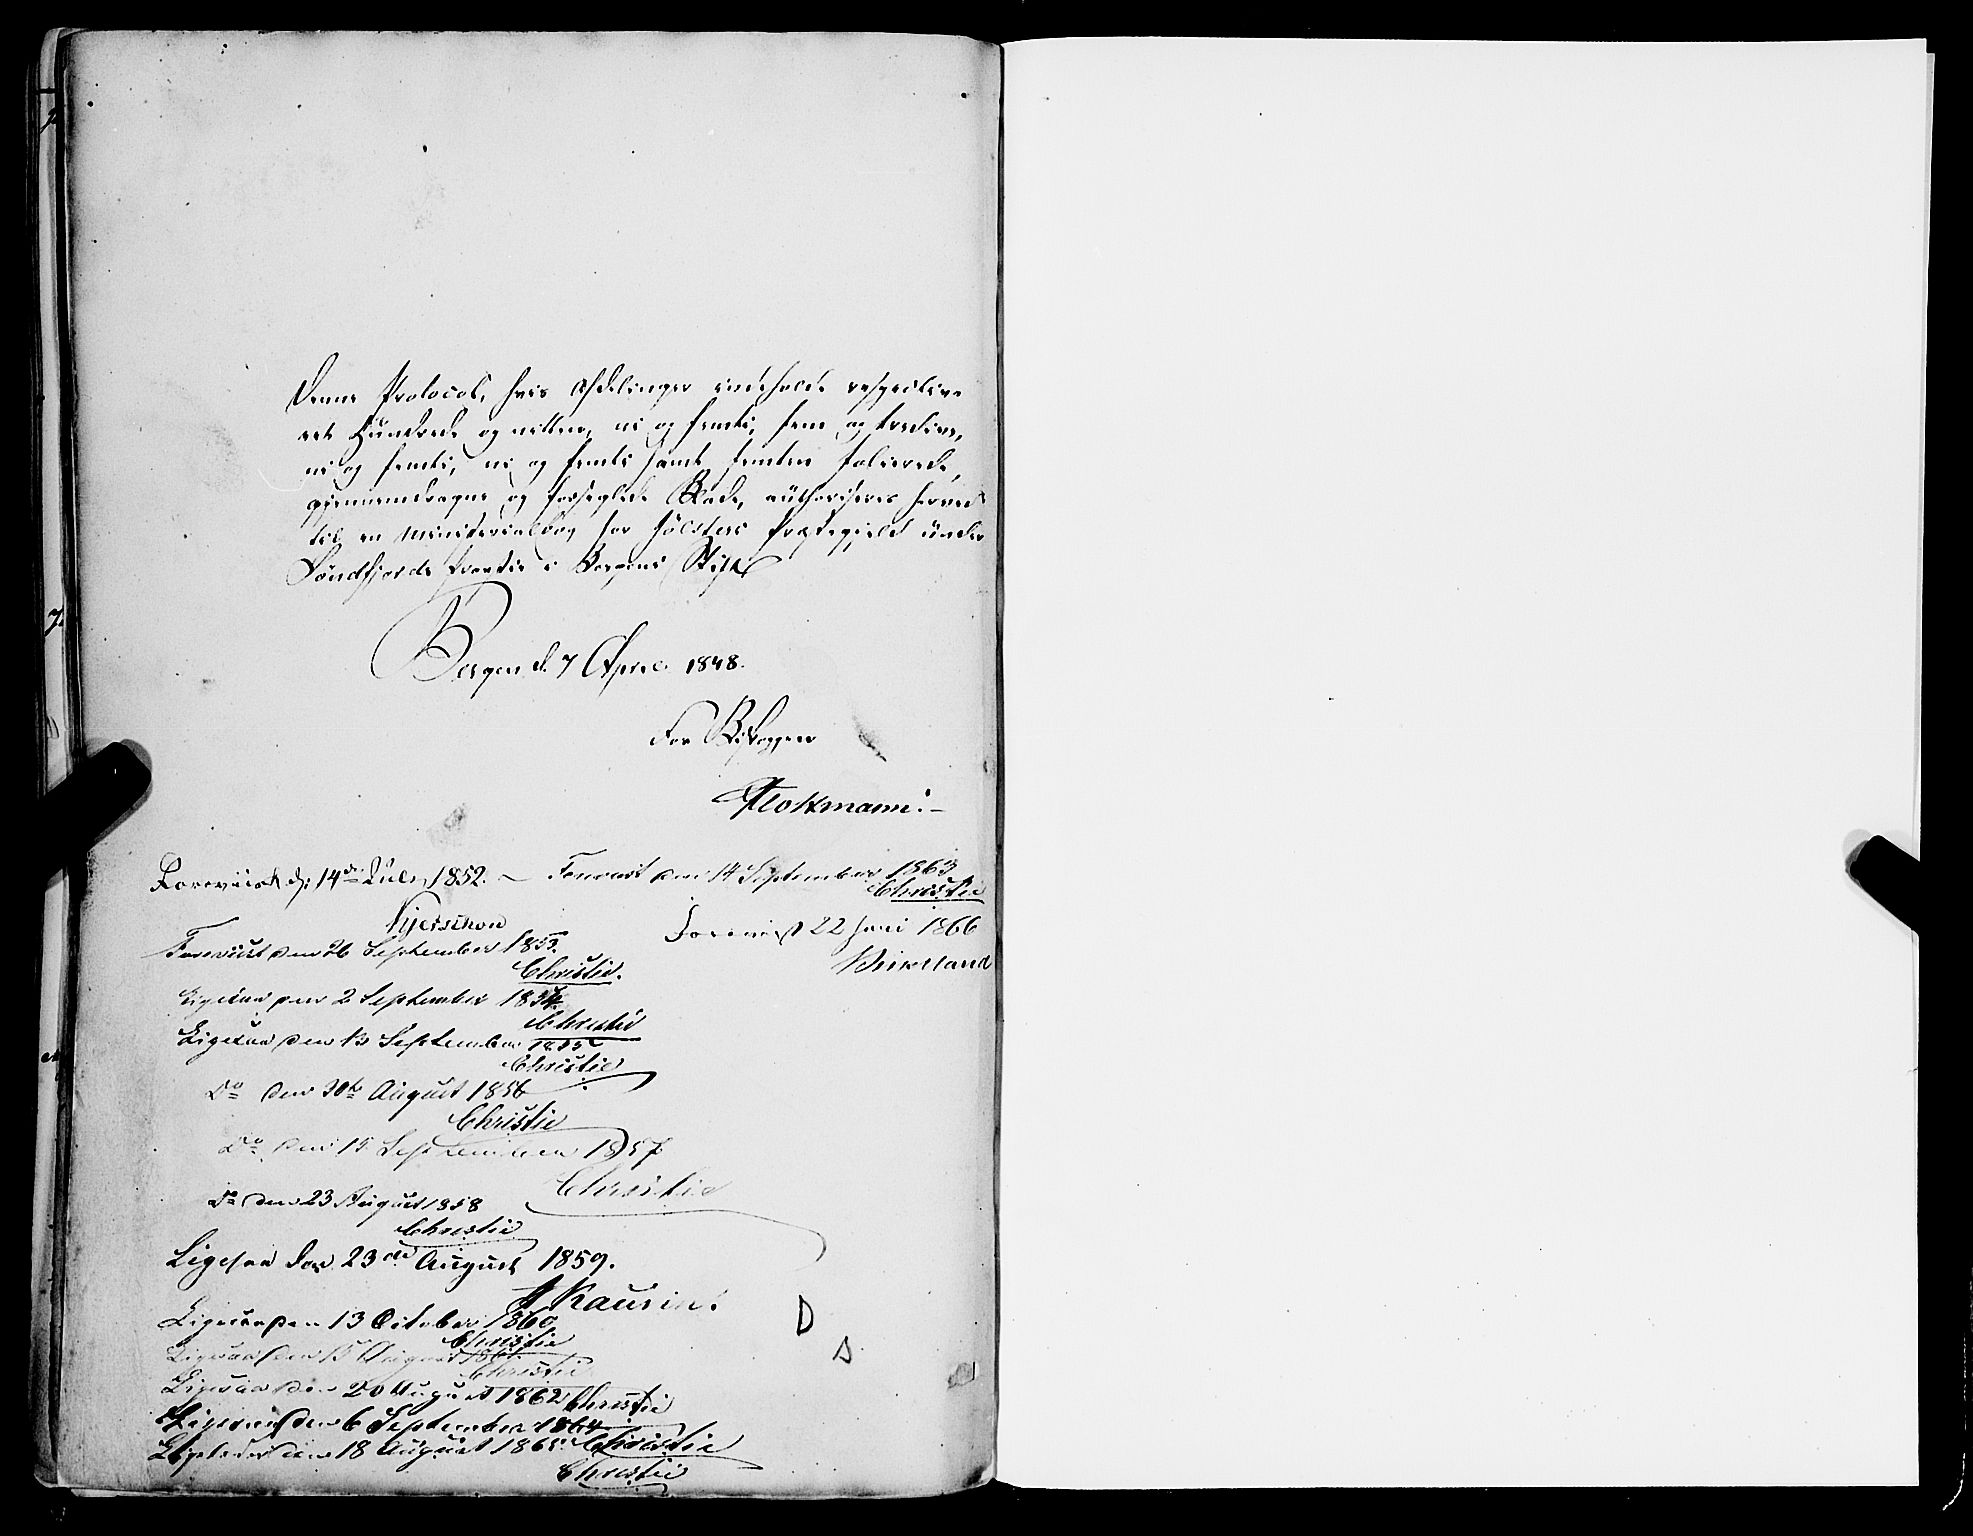 Denne Protocol, hvis Afdelinger indeholde respective
eet Hundrede og nitten, ni og femti, fem og tredive,
ni og femti, ni og femti samt femten folierede,
gjennemdragne og forseglede Blade, authoriseres herved
til en Ministerialbog for Jølsters Præstegjeld under
Søndfjords Provstie i Bergens Stift
Bergen d. 7 April 1848.
For Biskoppen
Foreviist d: 14de Juli 1852. –
Kjerschow
Foreviist den 26 September 1853.
Christie.
Ligesaa den 2 September 1854.
Christie
Ligesaa den 13 September 1855
Christie
Do den 30te August 1856
Christie
Do den 15 September 1857
Christie
Do den 23 August 1858
Christie
Ligesaa den 23de August 1859.
Kaurin.
Ligesaa den 13 October 1860
Christie
Ligesaa den 15 August 1861.
Christie
Ligesaa den 20 August 1862 Christie
Ligesaa den 6 September 1864
Christie
Ligesaa den 18 August 1865.
Christie
Foreviist den 14 September 1863
Christie
Foreviist 22 Juni 1866
Birkeland
D